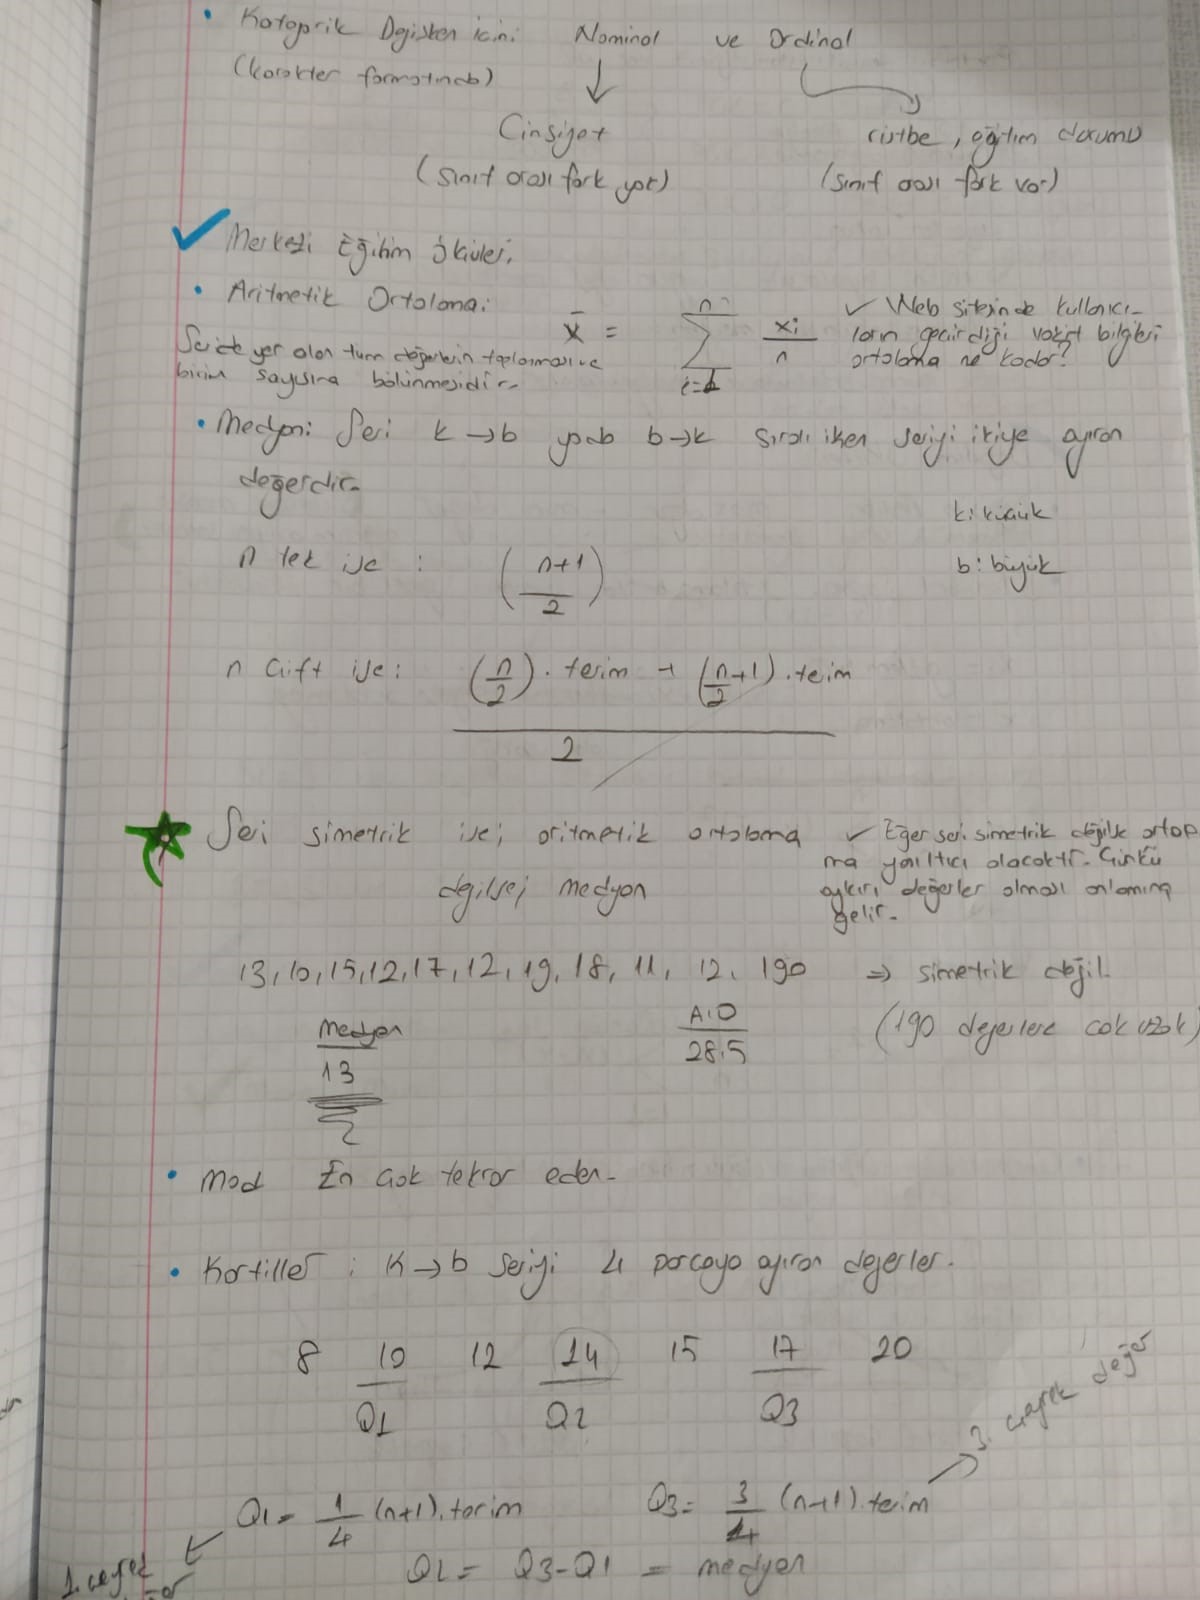 • Kategorik Değişken için: Nominal ve Ordinal
(karakter formatında)
Cinsiyet
rütbe, eğitim durumu
(sınıf arası fark yok)
(sınıf arası fark var)
✓ Merkezi Eğilim Ölçüleri.
• Aritmetik Ortalama:
x̄ = n ∑ i=1 xi/n
✓ Web sitesinde kullanıcı-
ların geçirdiği vakit bilgileri
ortalama ne kadar?
Seride yer alan tüm değerlerin toplanması ve
birim sayısına bölünmesidir.
• Medyan: Seri k→b yada b→k sıralı iken seriyi ikiye ayıran
değerdir.
k: küçük
b: büyük
n tek ise : (n+1/2)
n çift ise: (n/2). terim + (n/2+1). terim
2
Seri simetrik ise; aritmetik ortalama
değilse; medyan
✓ Eğer seri simetrik değilse ortala
ma yanıltıcı olacaktır. Çünkü
aykırı değerler olması anlamına
gelir.
13, 10, 15, 12, 17, 12, 19, 18, 11, 12, 190 ⇒ simetrik değil
(190 değerlere çok uzak)
Medyan
13
A.O
28.5
• Mod En çok tekrar eden.
• Kartiller : K→b seriyi 4 parçaya ayıran değerler.
8 10 12 14 15 17 20
Q1 Q2 Q3
3. çeyrek değer
Q1 = 1/4 (n+1). terim
Q3 = 3/4 (n+1). terim
1. çeyrek
Q2 = Q3-Q1 = medyan